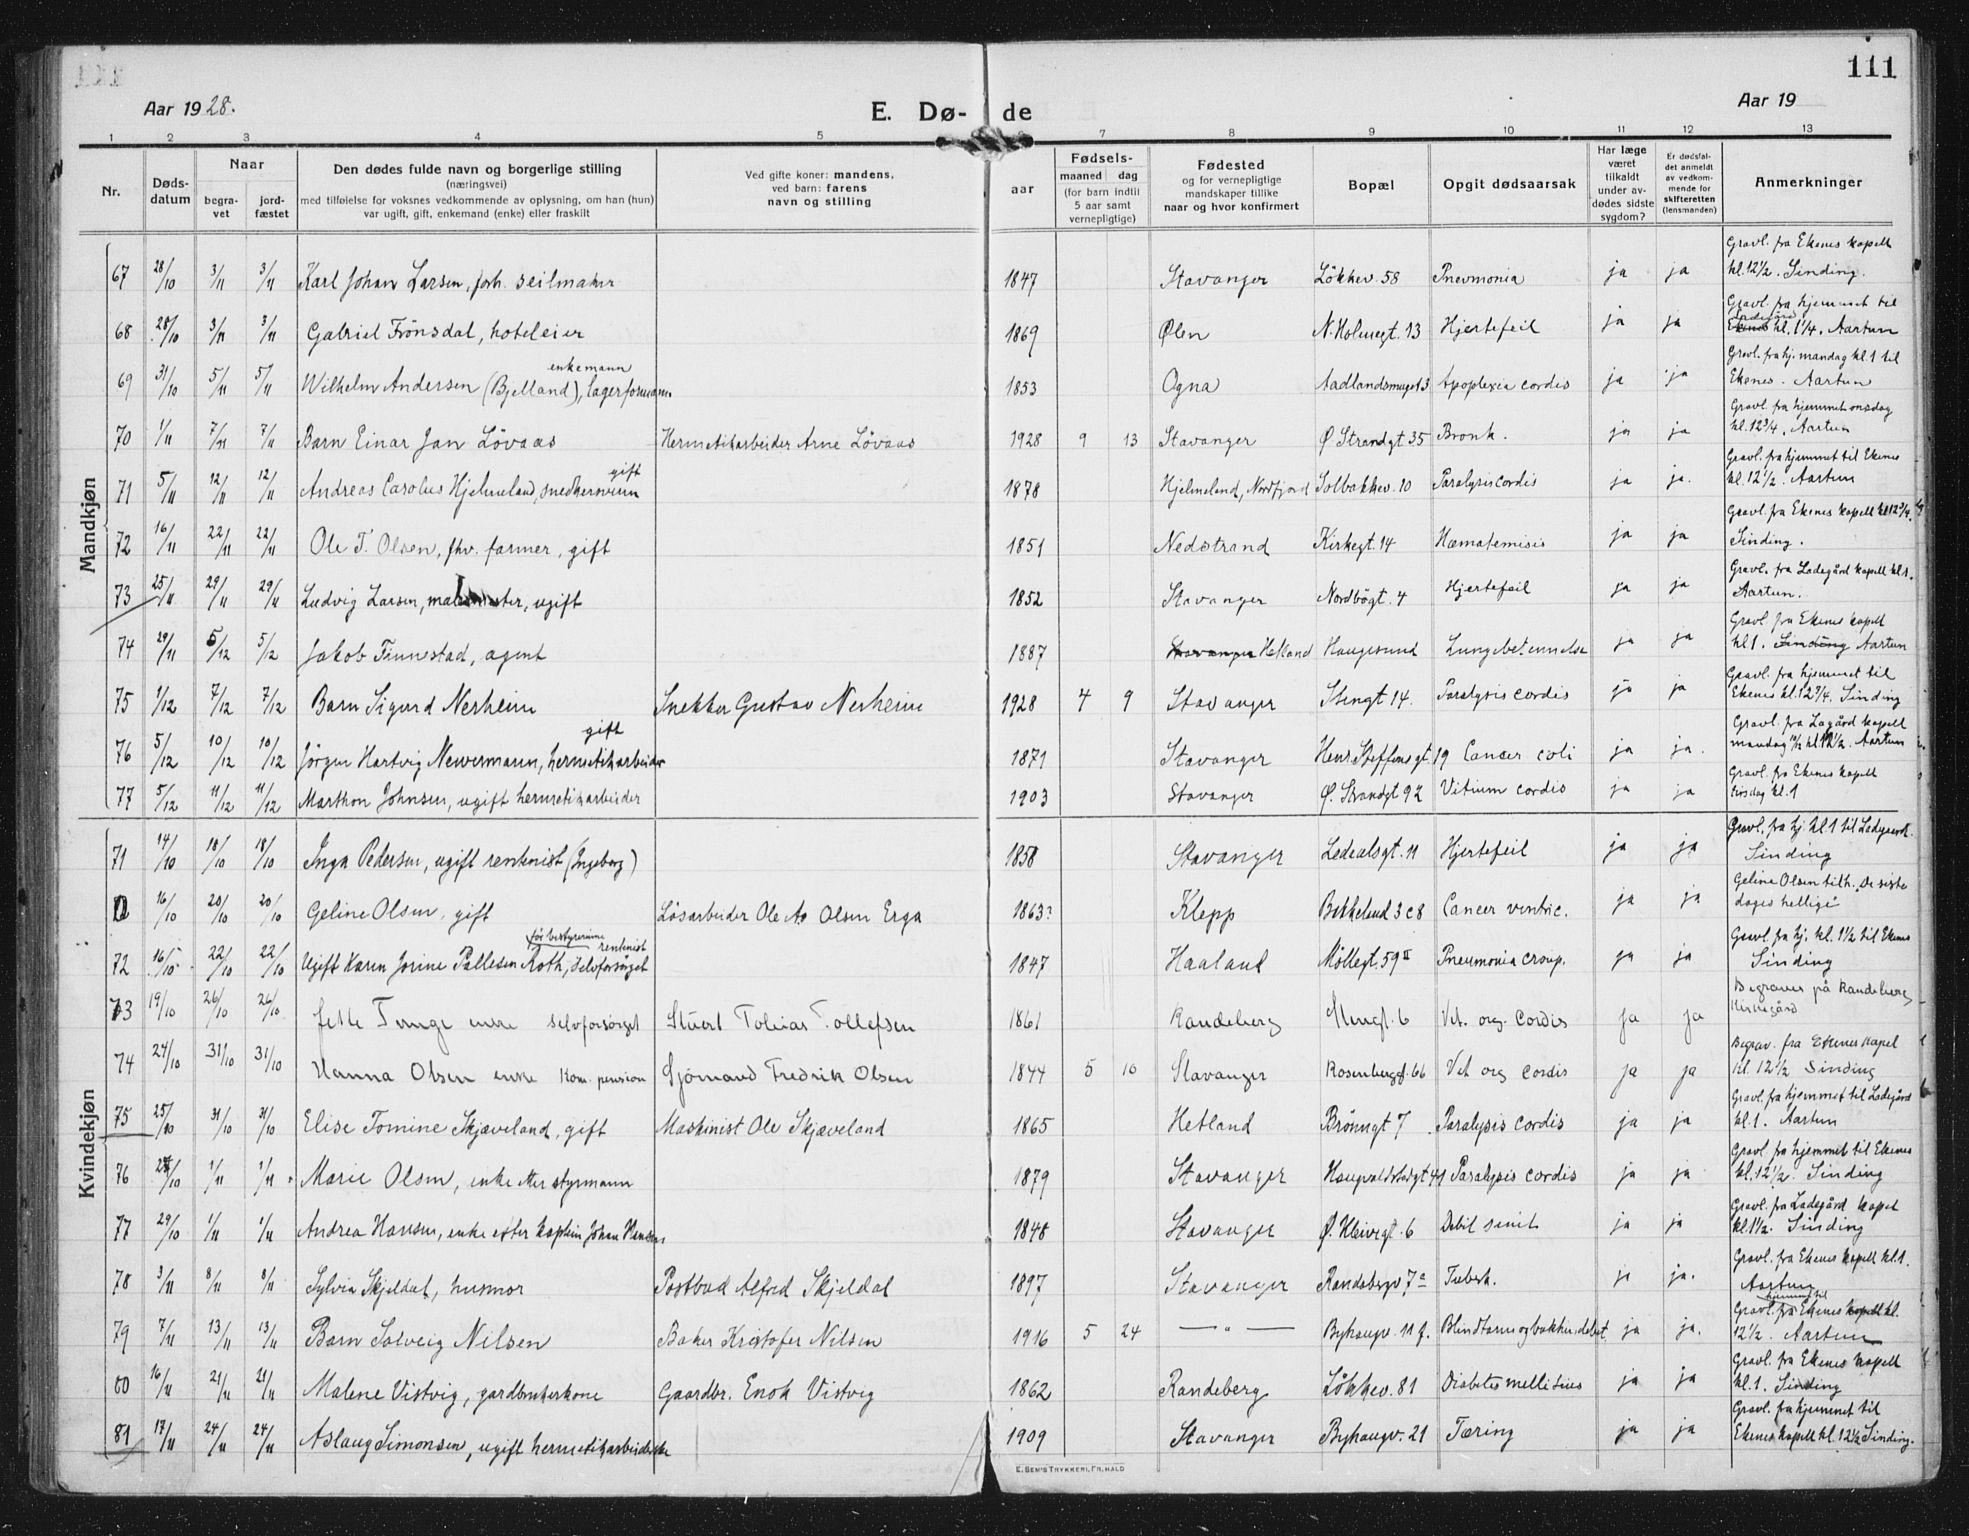 111
Aar 1928.
E. Dø- de
Aar 19
1 2 3 4 5 6 7 8 9 10 11 12 13
Nr.
Dødsdatum
Naar
begravet
jordfæstet
Den dødes fulde navn og borgerlige stilling
(næringsvei)
med tilføielse for voksnes vedkommende av oplysning, om han (hun)
var ugift, gift, enkemand (enke) eller fraskilt
Ved gifte koner: mandens,
ved barn: farens
navn og stilling
aar
Fødsels-
maaned dag
(for barn indtil
5 aar samt
vernepligtige)
Fødested
og for vernepligtige
mandskaper tillike
naar og hvor konfirmert
Bopæl
Opgit dødsaarsak
Har læge
været
tilkaldt
under av-
dødes sidste
sygdom?
Er dødsfal-
det anmeldt
av vedkom-
mende for
skifteretten
(lensmanden)
Anmerkninger
Mandkjøn
67 28/10 3/11 3/11 Karl Johan Larsen, forh. seilmaker 1847 Stavanger Lökkev. 58 Pnevmonia ja ja Gravl. fra Ekenes kapell kl. 12½. Sinding.
68 28/10 3/11 3/11 Gabriel Frönsdal, hoteleier 1869 Ølen N. Holmegt. 13 Hjertefeil ja ja Gravl. fra hjemmet til Ekenes Ladegård kl. 1¼. Aartun
69 31/10 5/11 5/11 Wilhelm Andersen (Bjelland), lagerformann enkemann 1853 Ogna Aadlandsmuget 3 Apoplexia cordis ja ja Gravl. fra hj. mandag kl. 1 til Ekenes. Aartun
70 1/11 7/11 7/11 Barn Einar Jan Lövaas Hermetikarbeider Arne Lövaas 1928 9 13 Stavanger Ø. Strandgt 35 Bronk. ja ja Gravl. fra hjemmet onsdag kl. 12¾. Aartun
71 5/11 12/11 12/11 Andreas Carolus Hjelmeland, snedkersvenn gift 1878 Hjelmeland, Nordfjord Solbakkev. 10 Paralysis cordis ja ja. Gravl. fra hjemmet til Ekenes kl. 12½. Aartun
72 16/11 22/11 22/11 Ole T. Olsen, fhv. farmer, gift 1851 Nedstrand Kirkegt. 14 Hæmatemisis ja ja Gravl. fra Ekenes kapell kl 12¾. Sinding.
73 25/11 29/11 29/11 Ludvig Larsen, ugift 1852 Stavanger Nordbögt. 4 Hjertefeil ja ja Gravl. fra Ladegård kapell kl. 1. Aartun.
74 29/11 5/12 5/12 Jakob Finnestad, agent 1887 Stavanger Hetland Haugesund Lungebetennelse ja ja Gravl. fra Ekenes kapell kl 1. Sinding Aartun
75 1/12 7/12 7/12 Barn Sigurd Nerheim Snekker Gustav Nerheim 1928 4 9 Stavanger Stengt 14. Paralysis cordis ja ja Gravl. fra hjemmet til Ekenes kl. 12¾. Sinding
76 5/12 10/12 10/12 Jörgen Hartvig Newermann, hermetikarbeider gift 1871 Stavanger Henr. Steffensgt. 19 Cancer coli ja ja. Gravl. fra Lagård kapell mandag 10/12 kl. 12½. Aartun
77 5/12 11/12 11/12 Marthon Johnsen, ugift hermetikarbeider 1903 Stavanger Ø. Strandgt 92 Vitium cordis ja ja Gravl. fra Ekenes kapell tirsdag kl. 1
Kvindekjøn
71 14/10 18/10 18/10 Inga Pedersen, ugift rentenist (Ingeborg) 1858 Stavanger Ledealsgt. 11 Hjertefeil ja ja Gravl. fra hj. kl. 1 til Ladegaard. Sinding
D 16/10 20/10 20/10 Geline Olsen, gift Lösarbeider Ole As Olsen Erga 1863? Klepp Bekkelund 3 c 8 Cancer ventric. ja ja Geline Olsen tilh. "De siste dages hellige"
72 16/10 22/10 22/10 Ugift Karen Jorine Pallesen Roth, selvforsörget för bestyrerinne rentenist 1847 Haaland Möllegt. 59 II Pneumonia croup. ja ja Gravl. fra hj. kl. 1½ til Ekenes Sinding
73 19/10 26/10 26/10 Jette Tunge enke selvforsörget Stuert Tobias Tollefsen 1861 Randeberg Stengt. 6 Vit. org. cordis ja ja Begraves på Randeberg Kirkegård
74 24/10 31/10 31/10 Hanna Olsen enke kom. pension Sjömand Fredrik Olsen 1844 5 10 Stavanger Rosenbergt. 66 Vit org cordis ja ja Begrav. fra Ekenes kapel kl. 12½ Sinding
75 25/10 31/10 31/10 Elise Tomine Skjæveland, gift Maskinist Ole Skjæveland 1865 Hetland Brönngt 7 Paralysis cordis ja ja Gravl. fra hjemmet til Ladegård kl. 1. Aartun
76 /10 1/11 1/11 Marie Olsen, enke etter styrmann 1879 Stavanger Haugvaldstadgt 41 Paralysis cordis ja ja Gravl. fra hjemmet til Ekenes kl. 12½. Sinding
77 29/10 1/11 1/11 Andrea Hansen, enke efter kaptein Johan Hansen 1848 Stavanger Ø. Kleivgt. 6 Debil senil ja ja Gravl. fra Ladegård kapel kl. 1½. Sinding
78 3/11 8/11 8/11 Sylvia Skjeldal, husmor Postbud Alfred Skjeldal 1897 Stavanger Randabergv 7a Tuberk. ja ja. Gravl. fra Ekenes kapell kl. 1. Aartun
79 7/11 13/11 13/11 Barn Solveig Nilsen Baker Kristofer Nilsen 1916 5 24 — " — Byhaugv. 11 f. Blindtarm og sukker. debet ja ja. Gravl. fra hjemmet til Ekenes kapell kl. 12½. Aartun
80 16/11 21/11 21/11 Malene Vistvig, gardbrukerkone Gaardbr. Enok Vistvig 1862 Randeberg Lökkev. 81 Diabetes mellitus ja ja Gravl. fra Ekenes kapell kl. 1. Sinding
81 17/11 24/11 24/11 Aslaug Simonsen, ugift hermetikarbeiderske 1909 Stavanger Byhaugv. 21 Tæring ja ja Gravl. fra hjemmet til Ekenes kapell kl. 12½ Sinding.
E. SEM'S TRYKKERI, FR. HALD